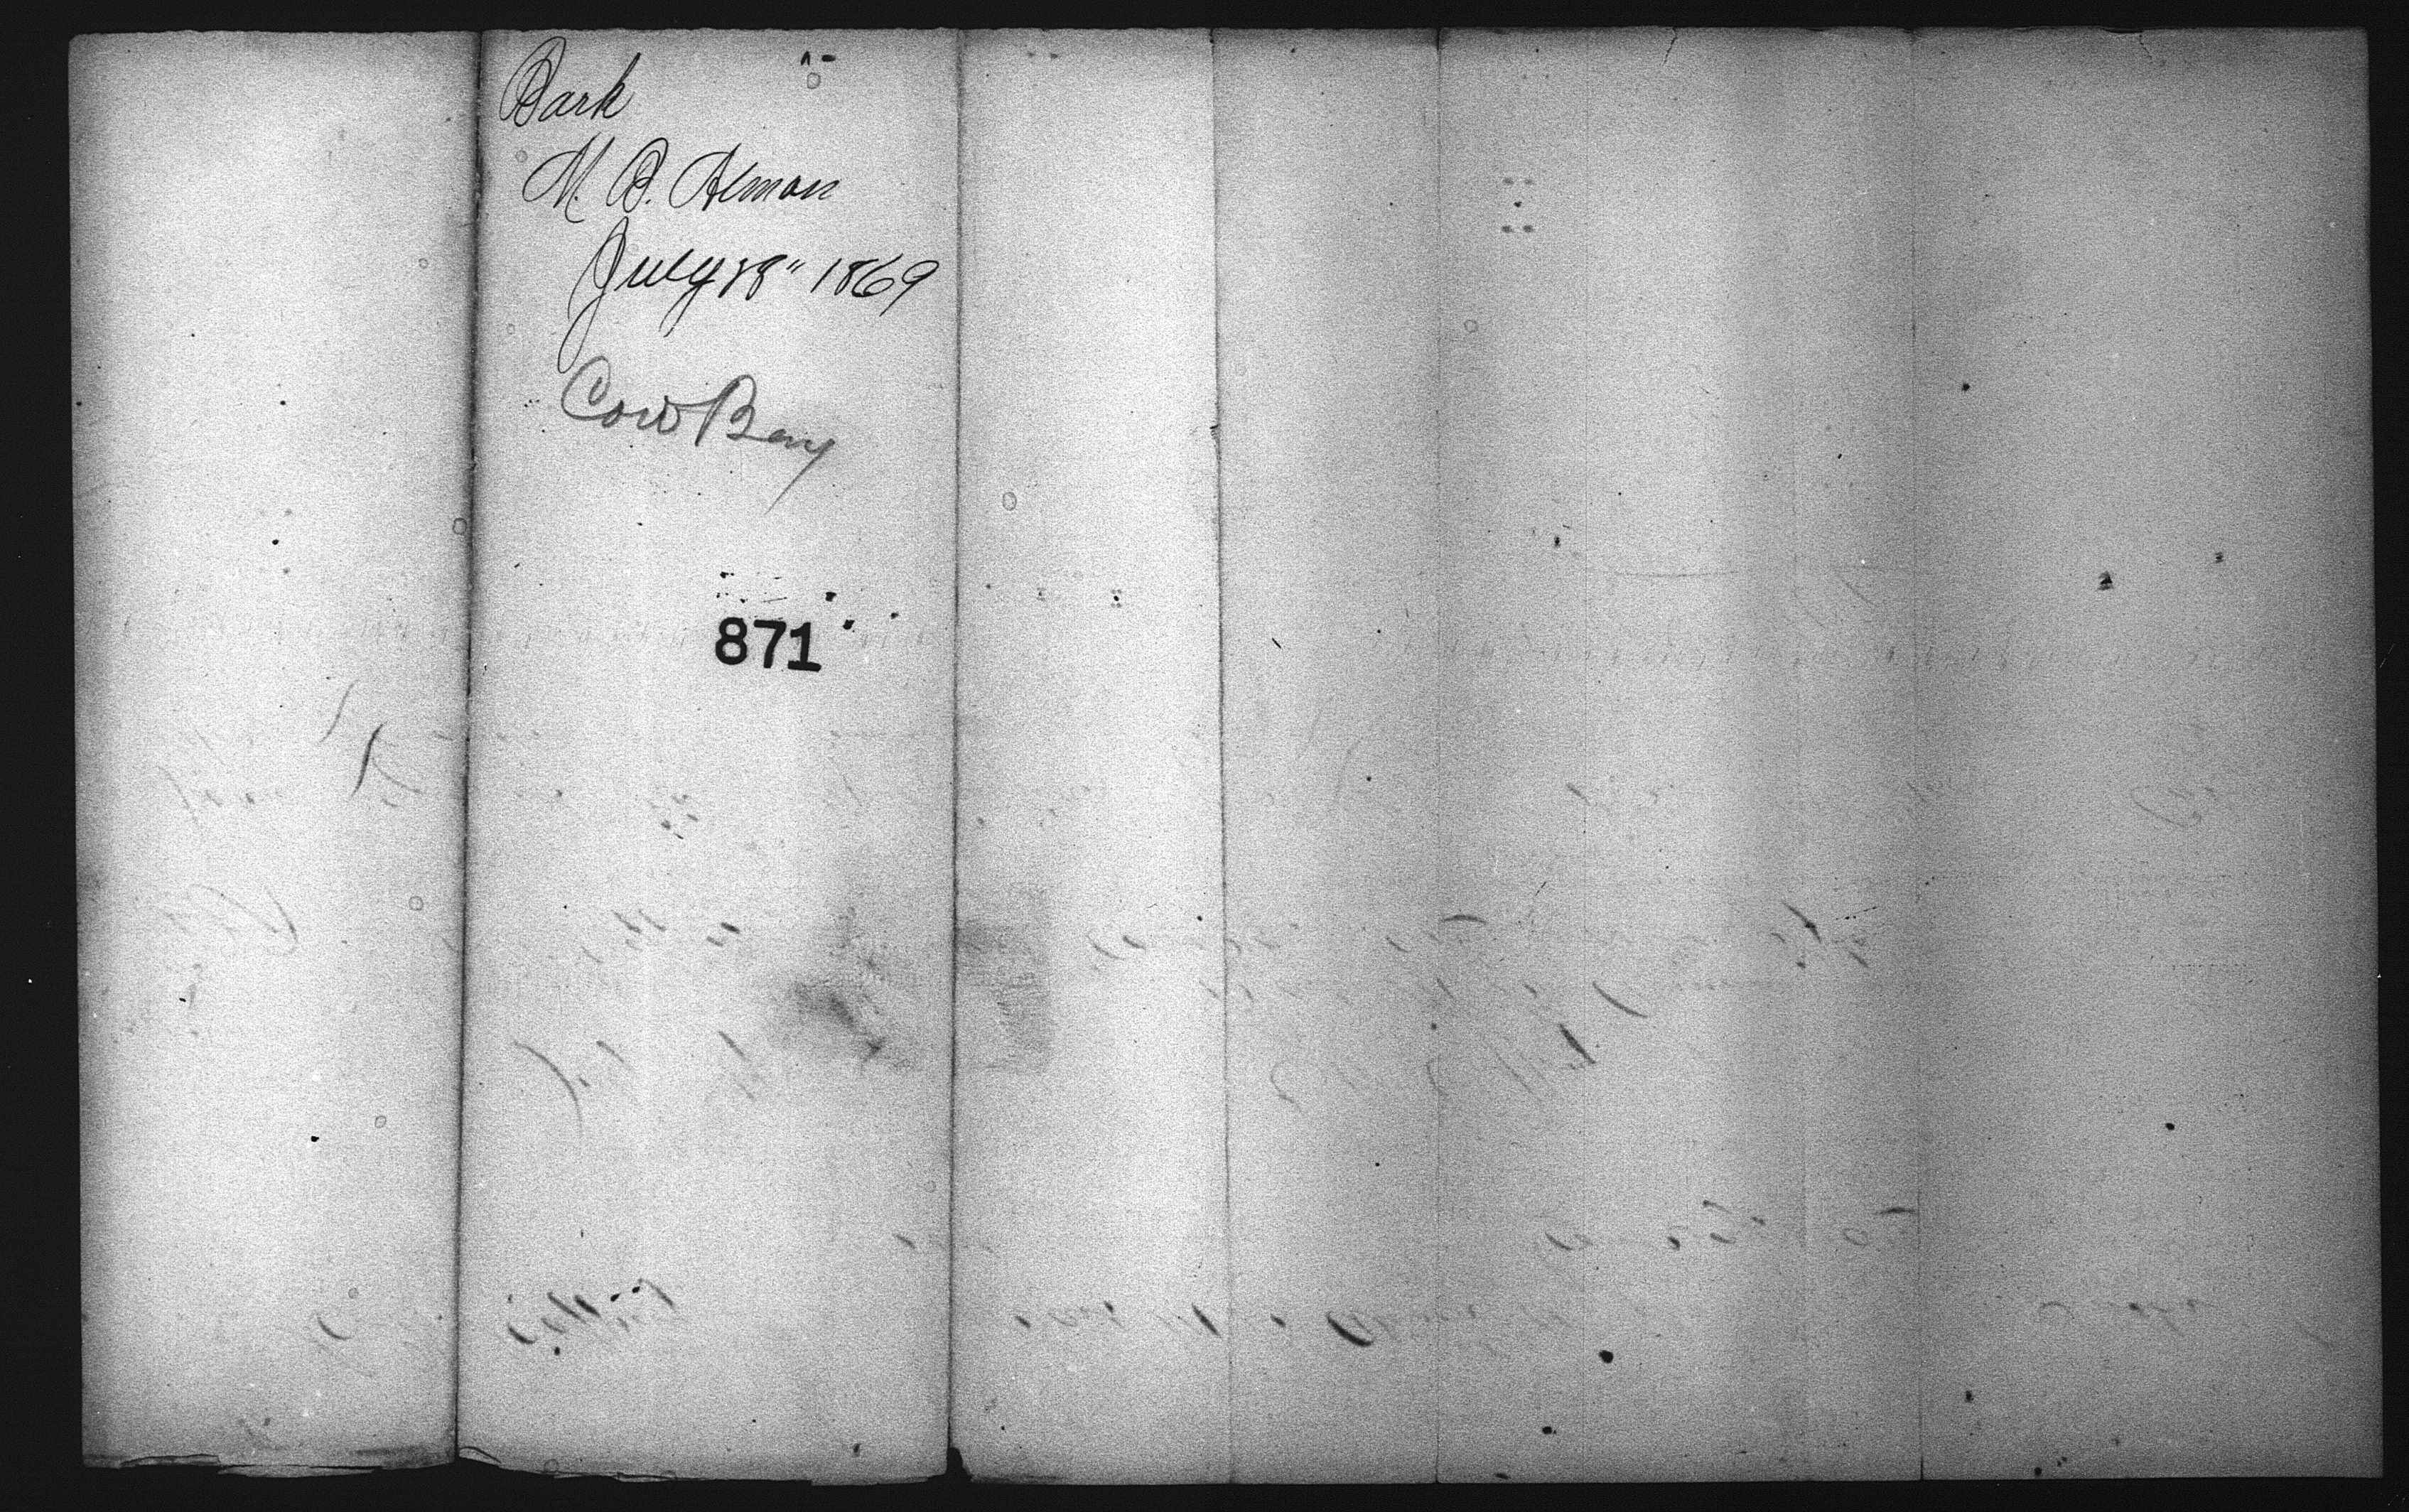 Bark
M. B. Almon
July 28" 1869
Cow Bay
871